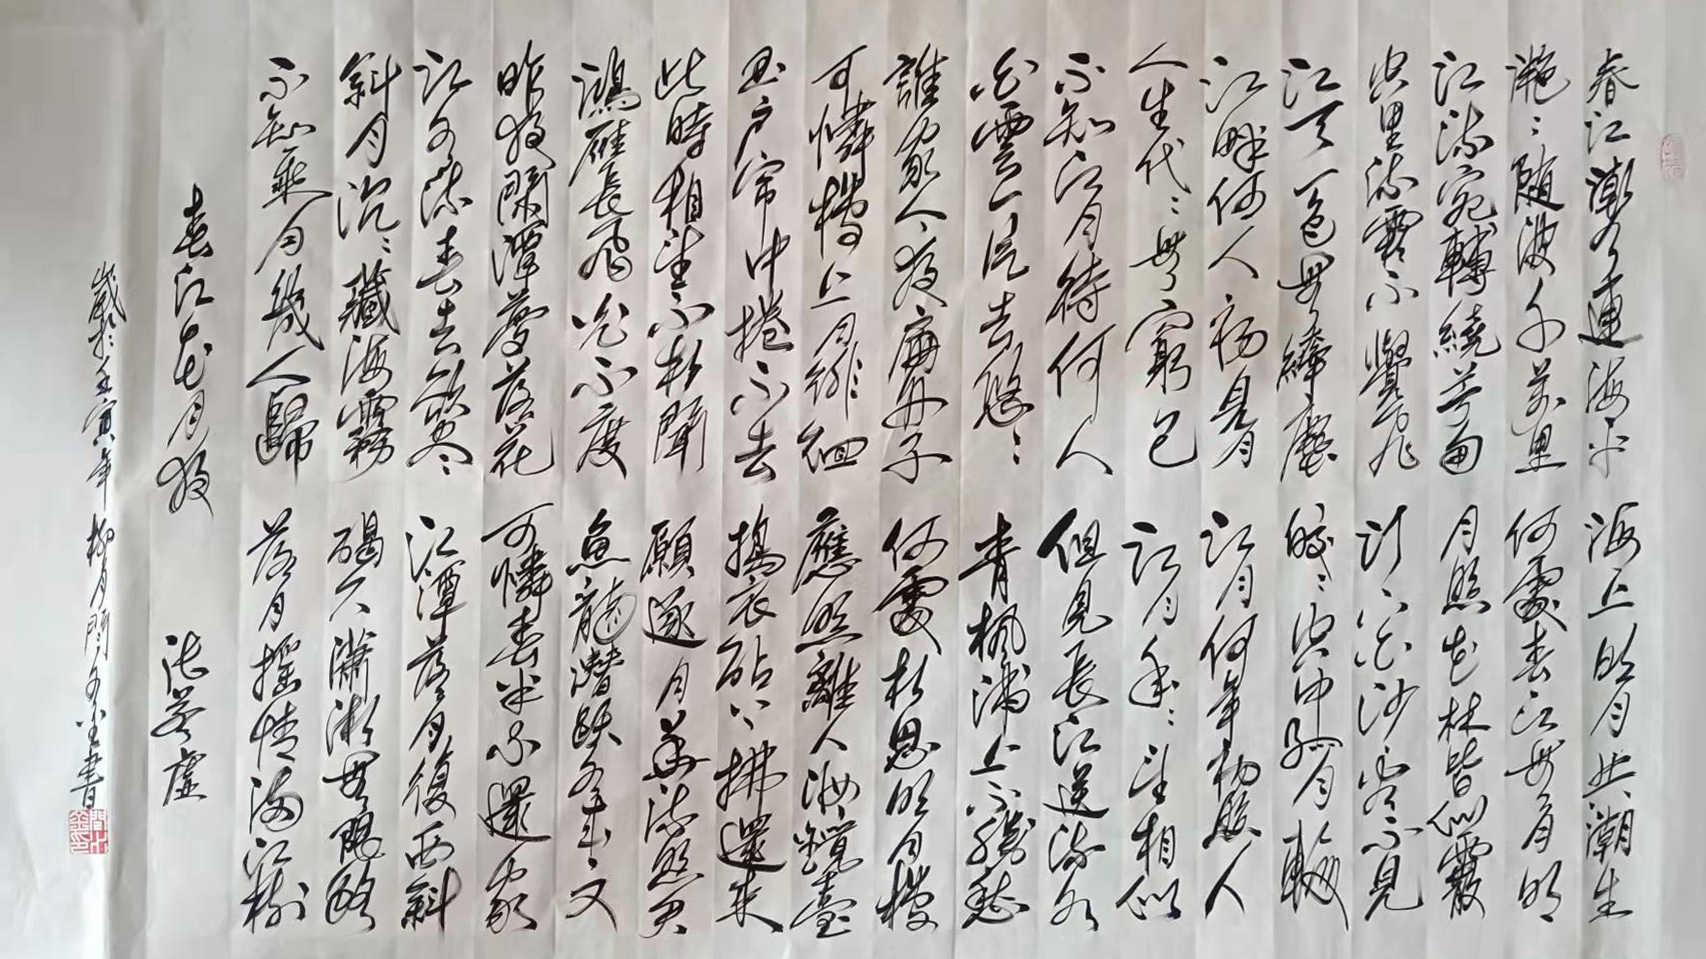 春江潮水連海平 海上明月共潮生
灧灧隨波千萬里 何處春江無月明
江流宛轉繞芳甸 月照花林皆似霰
空里流霜不覺飛 汀上白沙看不見
江天一色無纖塵 皎皎空中孤月輪
江畔何人初見月 江月何年初照人
人生代代無窮已 江月年年望相似
不知江月待何人 但見長江送流水
白雲一片去悠悠 青楓浦上不勝愁
誰家今夜扁舟子 何處相思明月樓
可憐樓上月徘徊 應照離人妝鏡臺
玉户帘中捲不去 搗衣砧上拂還來
此時相望不相聞 願逐月華流照君
鴻雁長飛光不度 魚龍潛躍水成文
昨夜閑潭夢落花 可憐春半不還家
江水流春去欲盡 江潭落月復西斜
斜月沉沉藏海霧 碣石瀟湘無限路
不知乘月幾人歸 落月搖情滿江樹
春江花月夜 張若虛
歲於壬寅年柳月書